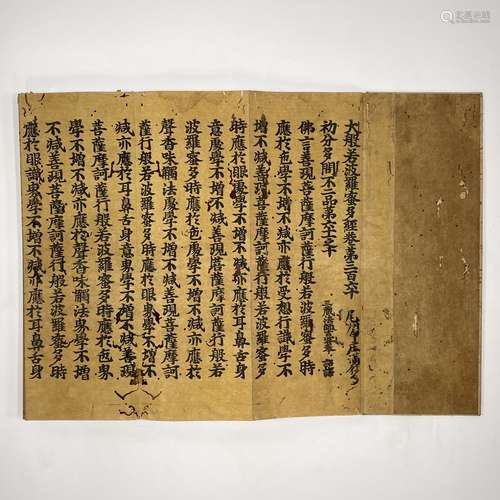 大般若波羅蜜多經卷第三百六十
初分多問不二品第六十一之十
三藏法師玄奘奉 詔譯
佛言善現菩薩摩訶薩行般若波羅蜜多時
應於色學不增不減亦應於受想行識學不
增不減善現菩薩摩訶薩行般若波羅蜜多
時應於眼處學不增不減亦應於耳鼻舌身
意處學不增不減善現菩薩摩訶薩行般若
波羅蜜多時應於色處學不增不減亦應於
聲香味觸法處學不增不減善現菩薩摩訶
薩行般若波羅蜜多時應於眼界學不增不
減亦應於耳鼻舌身意界學不增不減善現
菩薩摩訶薩行般若波羅蜜多時應於色界
學不增不減亦應於聲香味觸法界學不增
不減善現菩薩摩訶薩行般若波羅蜜多時
應於眼識界學不增不減亦應於耳鼻舌身